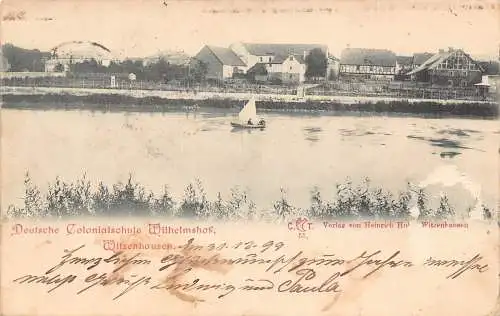 Deutsche Colonialschule Wilhelmshof,
Witzenhausen.
C. T.
Verlag von Heinrich Witzenhausen
31. 12. 99
Herzlichen Glückwunsch zum Jahre
Ludwig und Paula